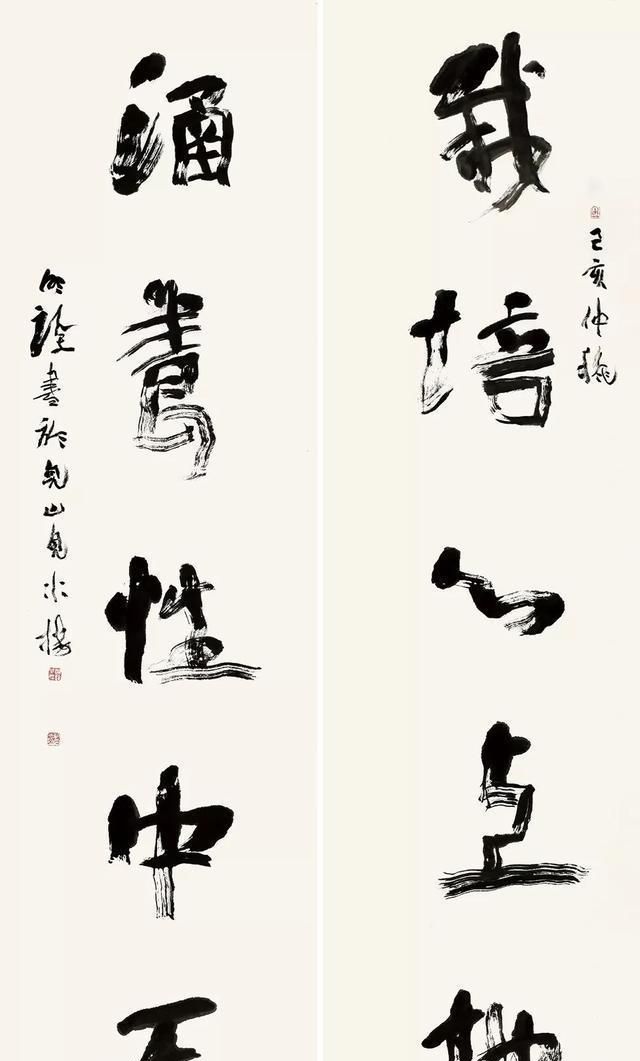 己亥仲秋
栽培心上
涵養性中
明詮書於見山見水樓